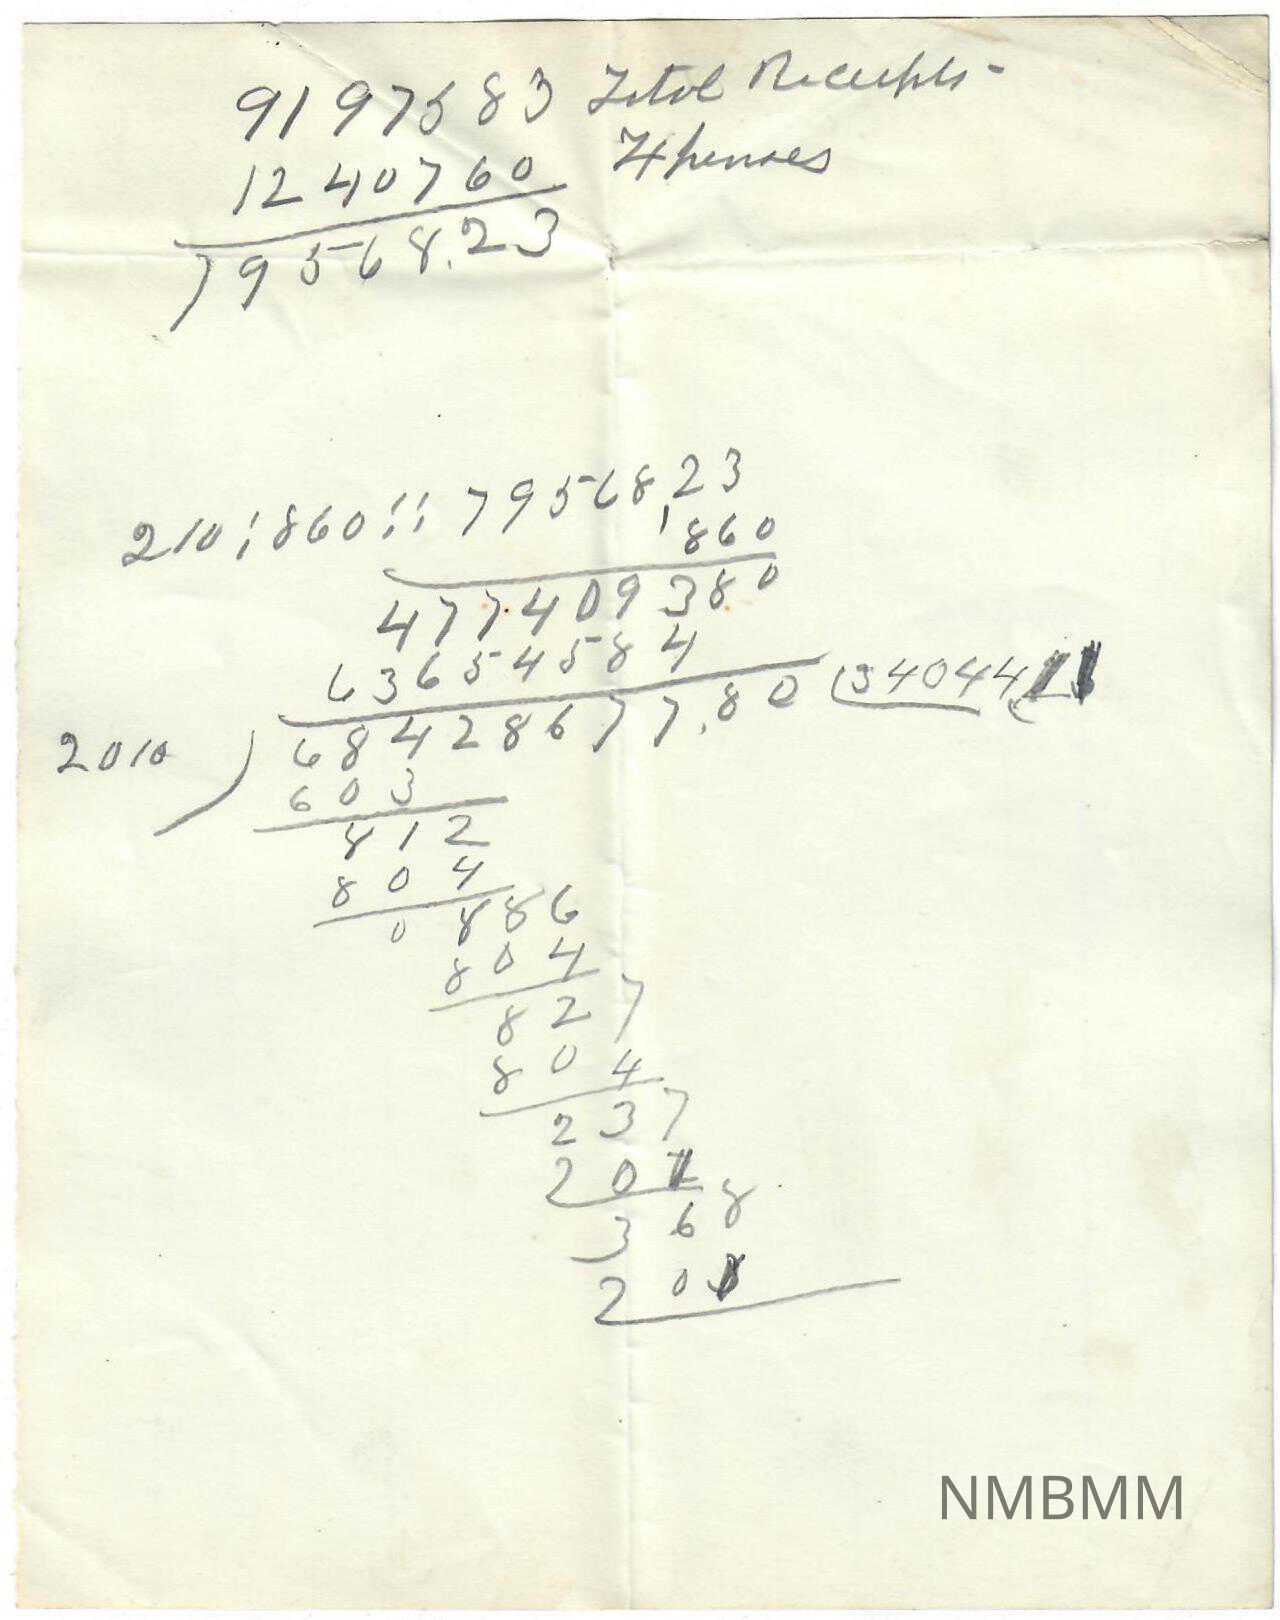 9197583 Total Receipts -
1240760 Expenses
79568.23
210:860::79568,23
860
477409380
63654584
68428677.80 (34044
2010 )
603
812
804
0886
804
827
804
237
201
368
201
NMBMM